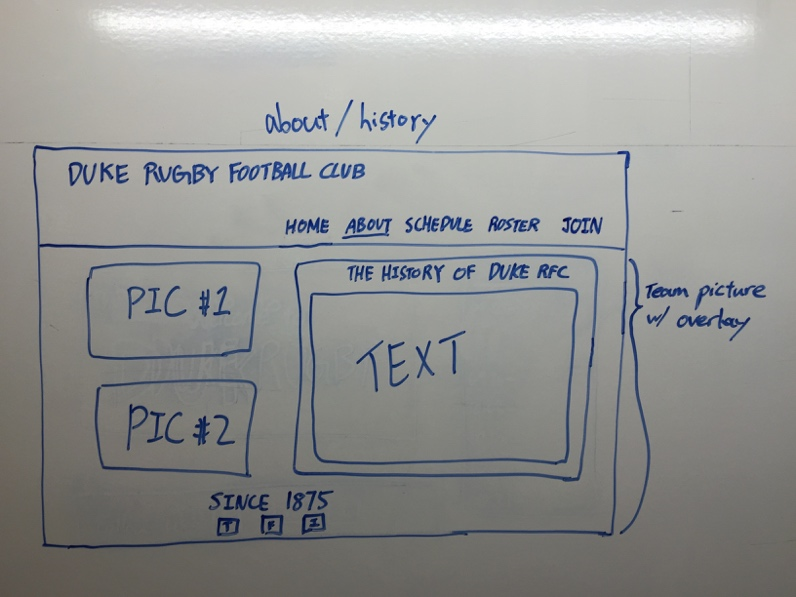 about/history
DUKE RUGBY FOOTBALL CLUB
HOME ABOUT SCHEDULE ROSTER JOIN
PIC #1
PIC #2
THE HISTORY OF DUKE RFC
TEXT
Team picture
w/ overlay
SINCE 1875
T F I